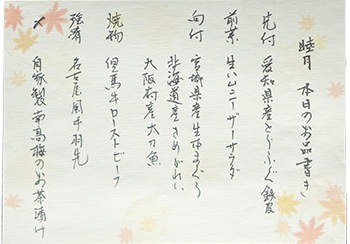 睦月 本日のお品書き
先付 愛知県産とらふぐ鉄皮
前菜 生ハムシーザーサラダ
向付 宮城県産生本まぐろ
北海道産さめがれい
大阪府産太刀魚
焼物 但馬牛ローストビーフ
強肴 名古屋風手羽先
〆 自家製南高梅のお茶漬け